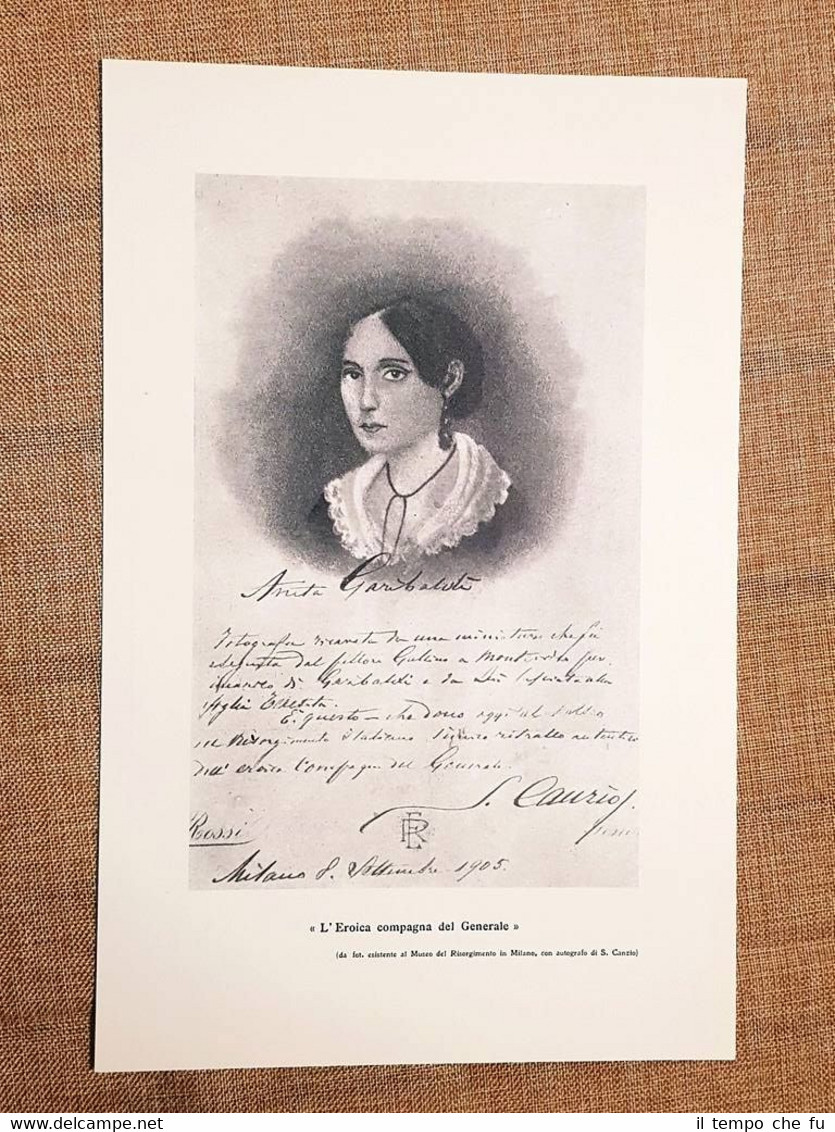 Anita Garibaldi
Fotografia ricavata da una miniatura che fu
eseguita dal pittore Gallino a Montevideo per
incarico di Garibaldi e da Lui
figli Eredità.
È questo – che dono oggi al
del Risorgimento Italiano l'unico ritratto autentico
dell' eroica Compagna del Generale.
S. Canzio
Rossi
FRL
Milano 8. Settembre 1905.
« L' Eroica compagna del Generale »
(da fot. esistente al Museo del Risorgimento in Milano, con autografo di S. Canzio)
il tempo che fu